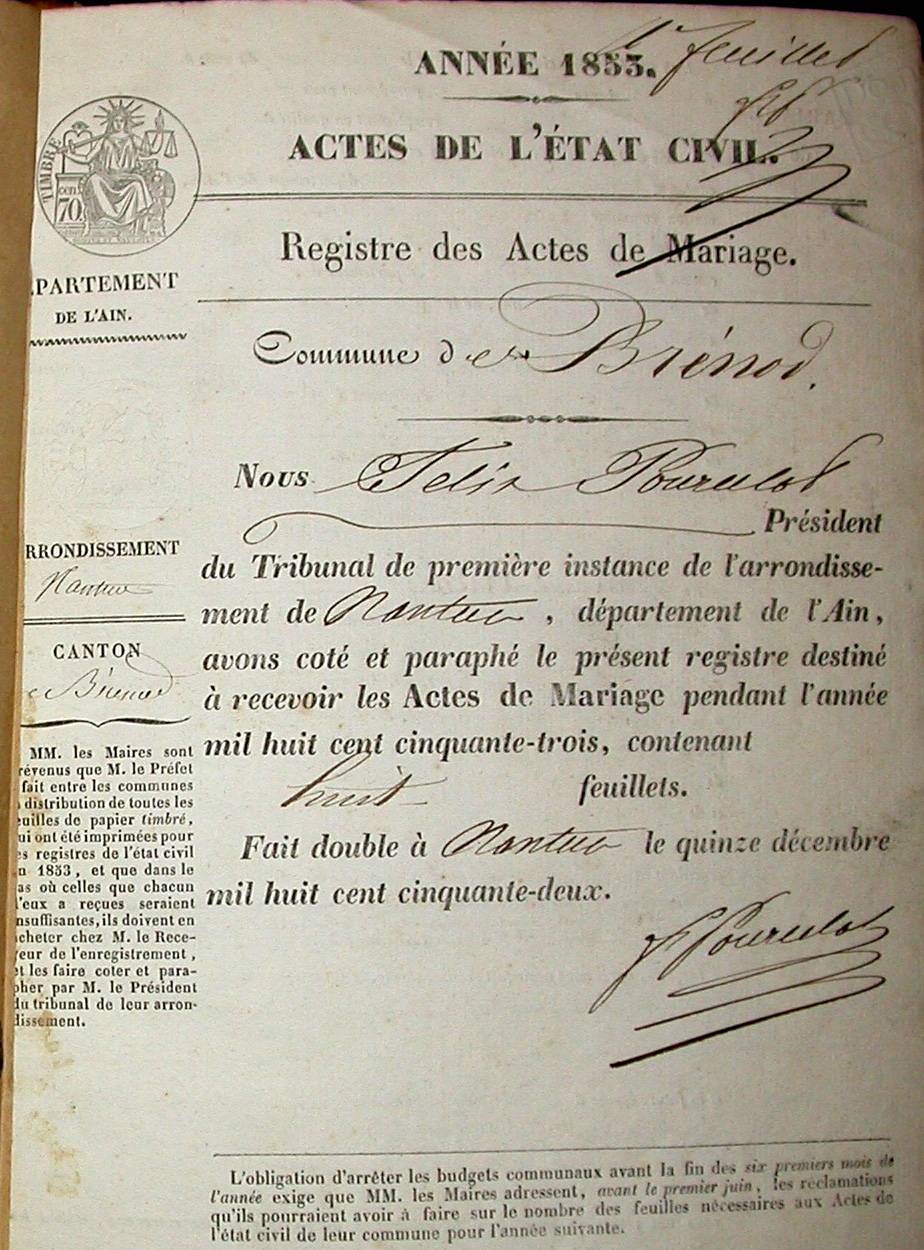 ANNÉE 1853.
1er feuillet
ACTES DE L'ÉTAT CIVIL.
TIMBRE
cen
70
Registre des Actes de Mariage.
ÉPARTEMENT
DE L'AIN.
Commune de Brénod.
Nous Felix
Président
du Tribunal de première instance de l'arrondisse-
ment de Nantua, département de l'Ain,
avons coté et paraphé le présent registre destiné
à recevoir les Actes de Mariage pendant l'année
mil huit cent cinquante-trois, contenant
huit feuillets.
Fait double à Nantua le quinze décembre
mil huit cent cinquante-deux.
RRONDISSEMENT
Nantua
CANTON
de Brénod
MM. les Maires sont
révenus que M. le Préfet
fait entre les communes
distribution de toutes les
euilles de papier timbré,
ui ont été imprimées pour
es registres de l'état civil
n 1853, et que dans le
as où celles que chacun
'eux a reçues seraient
nsuffisantes, ils doivent en
cheter chez M. le Rece-
eur de l'enregistrement,
et les faire coter et para-
pher par M. le Président
du tribunal de leur arron-
dissement.
L'obligation d'arrêter les budgets communaux avant la fin des six premiers mois de
l'année exige que MM. les Maires adressent, avant le premier juin, les réclamations
qu'ils pourraient avoir à faire sur le nombre des feuilles nécessaires aux Actes de
l'état civil de leur commune pour l'année suivante.